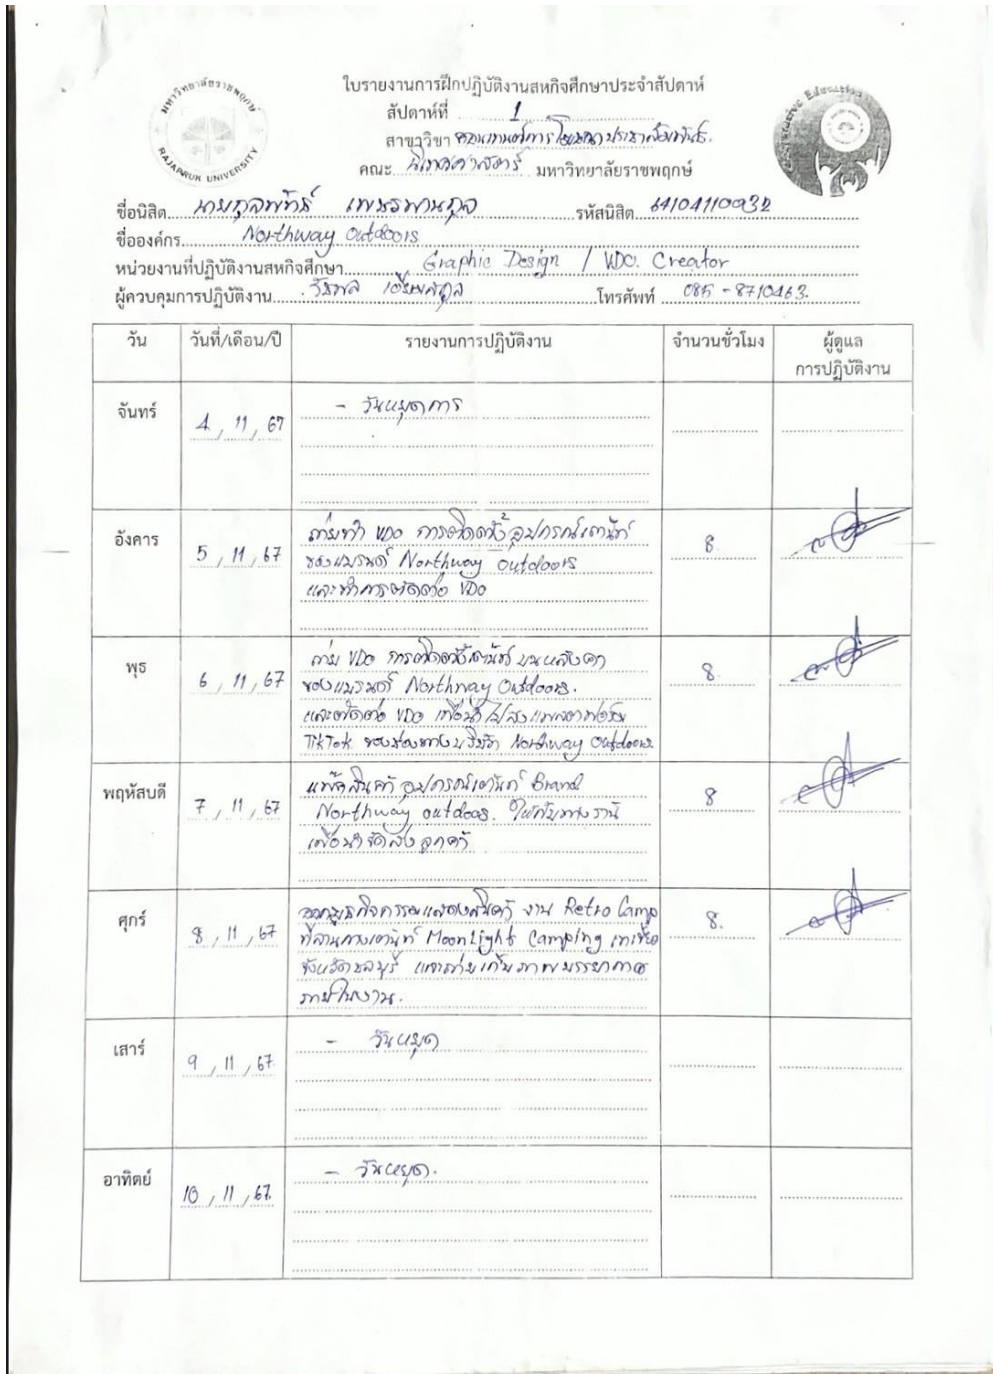 มหาวิทยาลัยราชพฤกษ์
RAJAPRUK UNIVERSITY
Cooperative Education
ใบรายงานการฝึกปฏิบัติงานสหกิจศึกษาประจำสัปดาห์
สัปดาห์ที่ 1
สาขาวิชา
คณะ นิเทศศาสตร์ มหาวิทยาลัยราชพฤกษ์
ชื่อนิสิต รหัสนิสิต
ชื่อองค์กร Northway Outdoors
หน่วยงานที่ปฏิบัติงานสหกิจศึกษา Graphic Design / VDO. Creator
ผู้ควบคุมการปฏิบัติงาน โทรศัพท์
วัน วันที่/เดือน/ปี รายงานการปฏิบัติงาน จำนวนชั่วโมง ผู้ดูแล
การปฏิบัติงาน
จันทร์ 4 , 11 , 67 - วันหยุดการ
อังคาร 5 , 11 , 67 ถ่ายทำ VDO การติดตั้งอุปกรณ์เต็นท์ 8
ของแบรนด์ Northway Outdoors
และทำการตัดต่อ VDO
พุธ 6 , 11 , 67 ถ่าย VDO การติดตั้งเต็นท์บนหลังคา 8
ของแบรนด์ Northway Outdoors.
และตัดต่อ VDO เพื่อนำไปลงแพลตฟอร์ม
TikTok ของช่องทางบริษัท Northway Outdoors
พฤหัสบดี 7 , 11 , 67 แพ็คสินค้าอุปกรณ์เต็นท์ Brand 8
Northway outdoors. ให้กับทางร้าน
เพื่อนำจัดส่งลูกค้า
ศุกร์ 8 , 11 , 67 ออกบูธกิจกรรมแสดงสินค้า งาน Retro Camp 8.
ที่ลานกางเต็นท์ MoonLight Camping
จังหวัดชลบุรี และถ่ายเก็บภาพบรรยากาศ
ภายในงาน.
เสาร์ 9 , 11 , 67 - วันหยุด
อาทิตย์ 10 , 11 , 67 - วันหยุด.